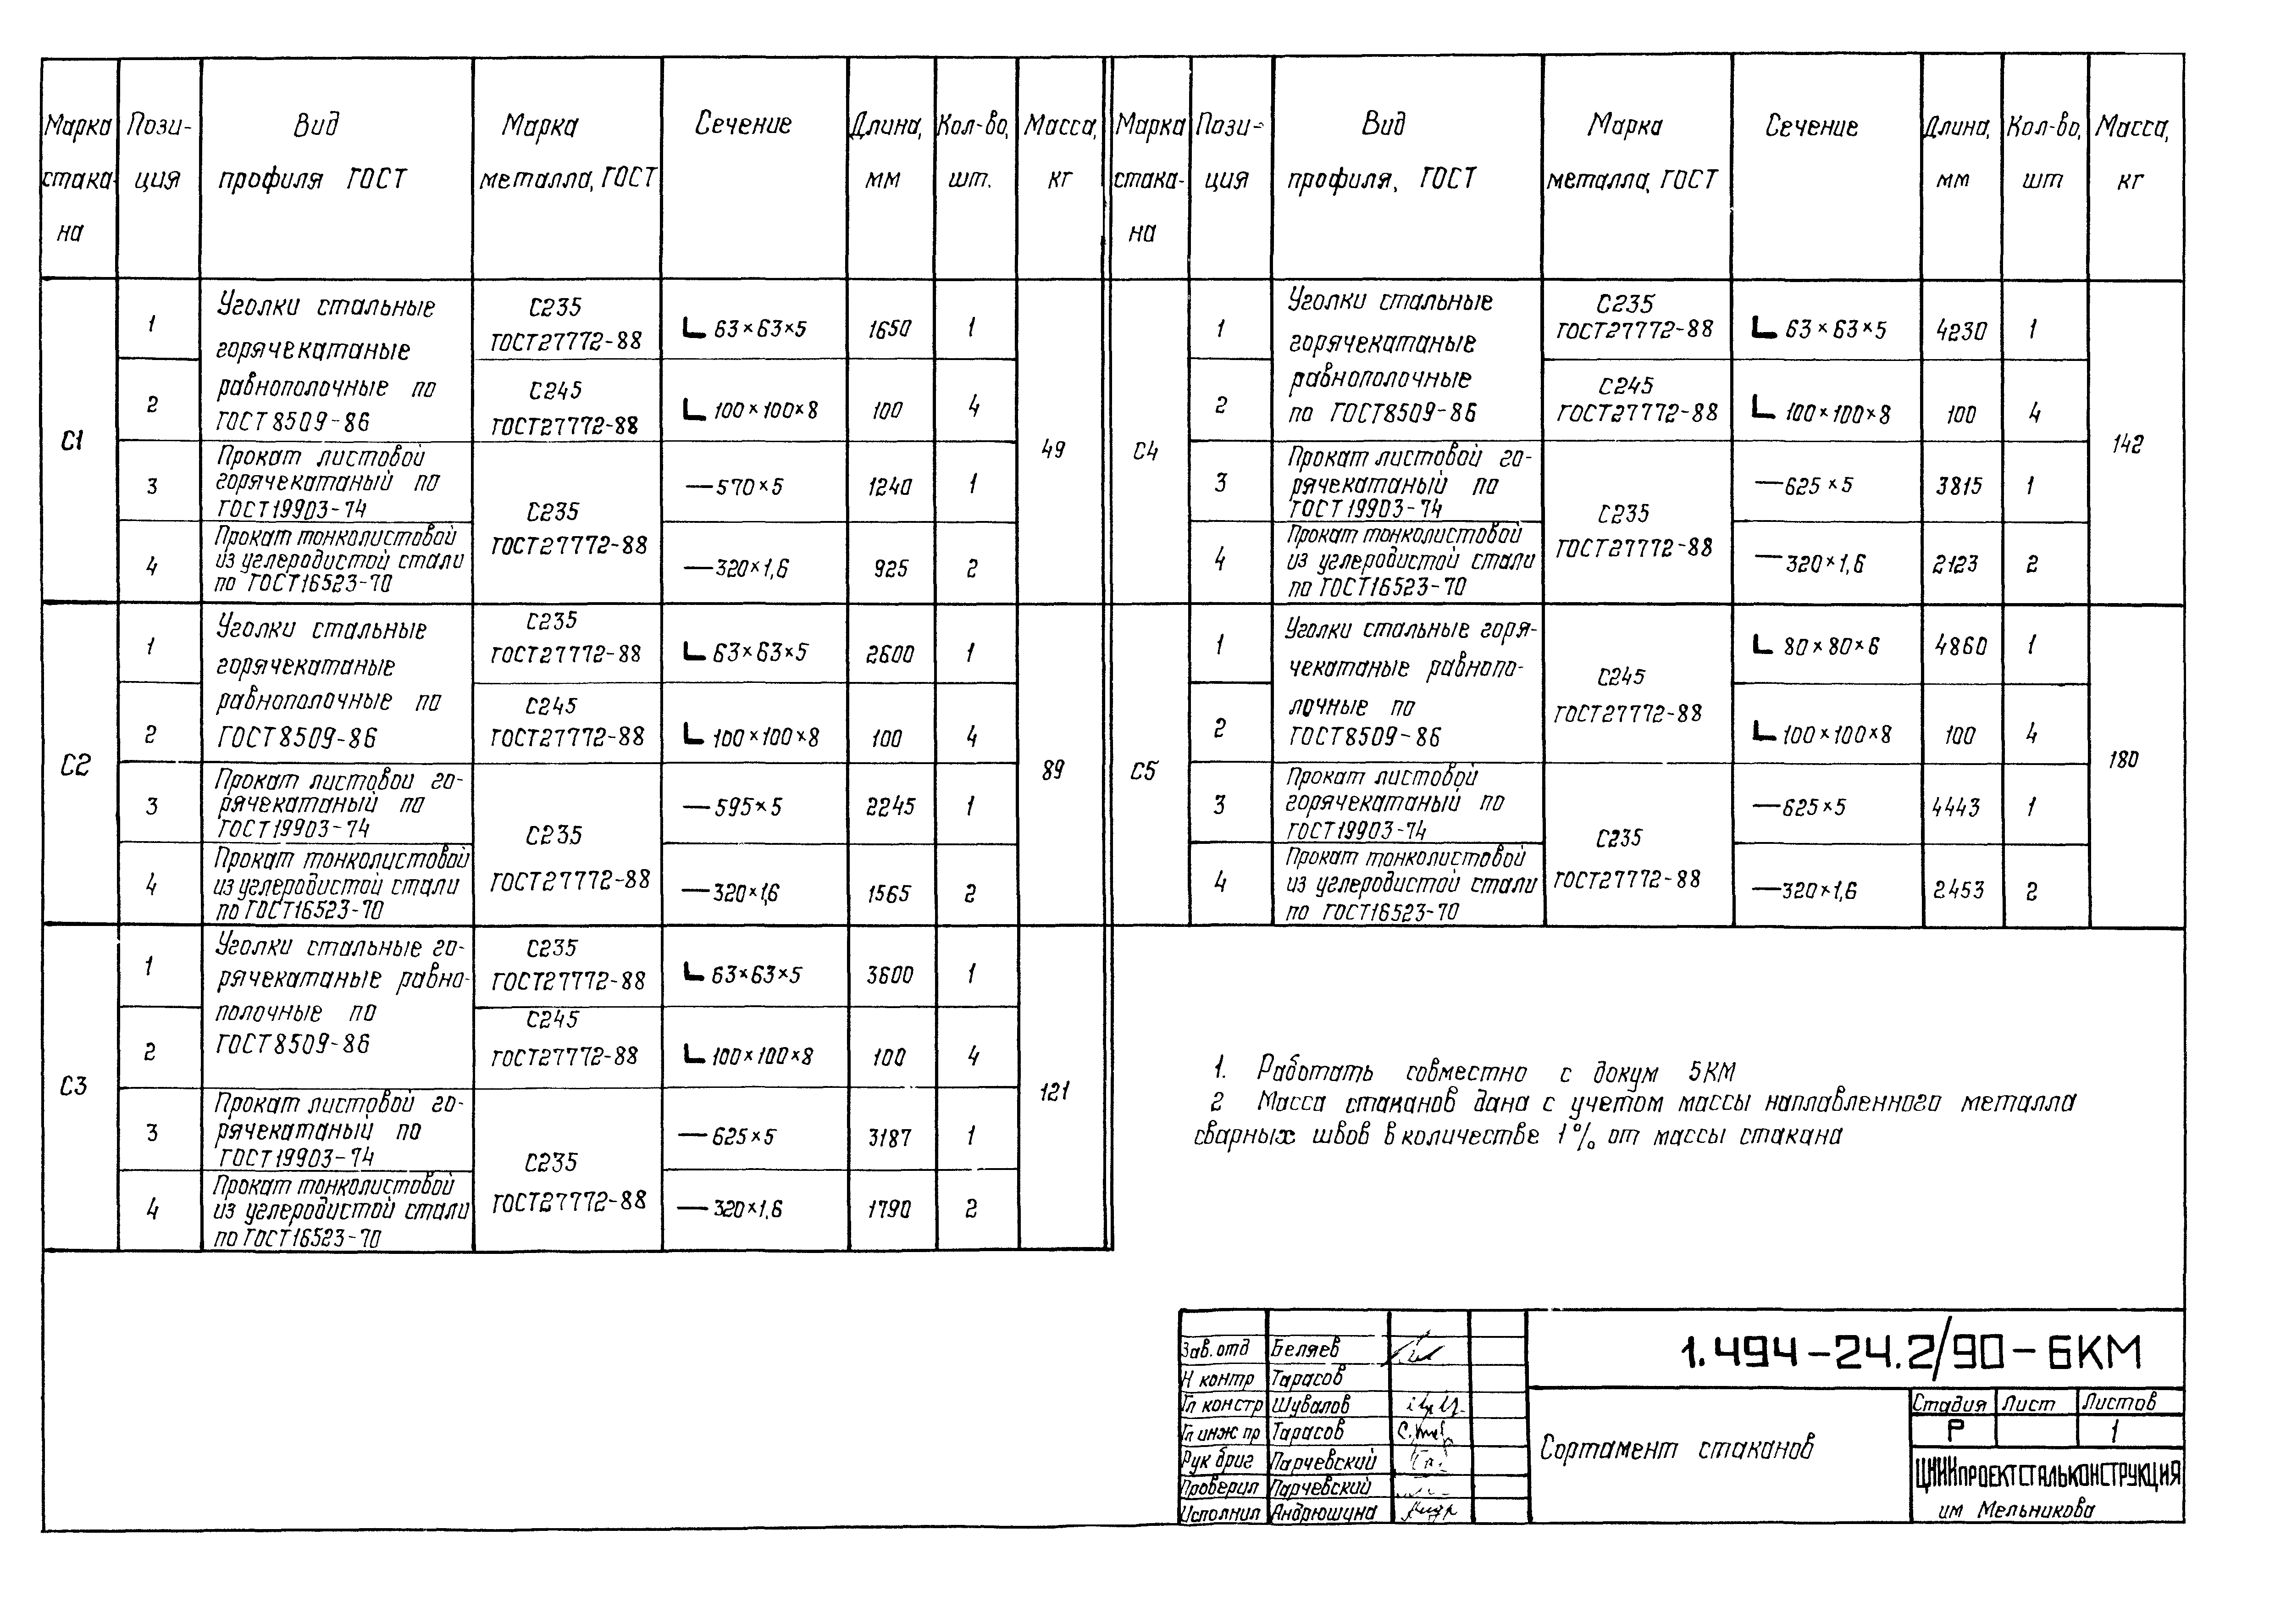 Марка стака- на
Пози- ция
Вид профиля ГОСТ
Марка металла, ГОСТ
Сечение
Длина, мм
Кол-во, шт.
Масса, кг
С1
49
1
Уголки стальные горячекатаные равнополочные по ГОСТ 8509-86
С235 ГОСТ27772-88
63×63×5
1650
1
2
С245 ГОСТ27772-88
100×100×8
100
4
3
Прокат листовой горячекатаный по ГОСТ19903-74
С235 ГОСТ27772-88
570×5
1240
1
4
Прокат тонколистовой из углеродистой стали по ГОСТ16523-70
320×1,6
925
2
С2
89
1
Уголки стальные горячекатаные равнополочные по ГОСТ8509-86
С235 ГОСТ27772-88
63×63×5
2600
1
2
С245 ГОСТ27772-88
100×100×8
100
4
3
Прокат листовой го- рячекатаный по ГОСТ19903-74
С235 ГОСТ27772-88
595×5
2245
1
4
Прокат тонколистовой из углеродистой стали по ГОСТ16523-70
320×1,6
1565
2
С3
121
1
Уголки стальные го- рячекатаные равно- полочные по ГОСТ8509-86
С235 ГОСТ27772-88
63×63×5
3600
1
2
С245 ГОСТ27772-88
100×100×8
100
4
3
Прокат листовой го- рячекатаный по ГОСТ19903-74
С235 ГОСТ27772-88
625×5
3187
1
4
Прокат тонколистовой из углеродистой стали по ГОСТ16523-70
320×1,6
1790
2
Марка стака- на
Пози- ция
Вид профиля, ГОСТ
Марка металла, ГОСТ
Сечение
Длина, мм
Кол-во, шт
Масса, кг
С4
142
1
Уголки стальные горячекатаные равнополочные по ГОСТ8509-86
С235 ГОСТ27772-88
63×63×5
4230
1
2
С245 ГОСТ27772-88
100×100×8
100
4
3
Прокат листовой го- рячекатаный по ГОСТ19903-74
С235 ГОСТ27772-88
625×5
3815
1
4
Прокат тонколистовой из углеродистой стали по ГОСТ16523-70
320×1,6
2123
2
С5
180
1
Уголки стальные горя- чекатаные равнопо- лочные по ГОСТ8509-86
С245 ГОСТ27772-88
80×80×6
4860
1
2
100×100×8
100
4
3
Прокат листовой горячекатаный по ГОСТ19903-74
С235 ГОСТ27772-88
625×5
4443
1
4
Прокат тонколистовой из углеродистой стали по ГОСТ16523-70
320×1,6
2453
2
1. Работать совместно с докум 5КМ
2 Масса стаканов дана с учетом массы наплавленного металла
сварных швов в количестве 1% от массы стакана
Зав. отд Беляев
Н контр Тарасов
Гл констр Шувалов
Гл инж пр Тарасов
Рук бриг Парчевский
Проверил Парчевский
Исполнил Андрюшина
1.494-24.2/90-6КМ
Сортамент стаканов
Стадия Лист Листов
Р 1
ЦНИИПРОЕКТСТАЛЬКОНСТРУКЦИЯ
им Мельникова